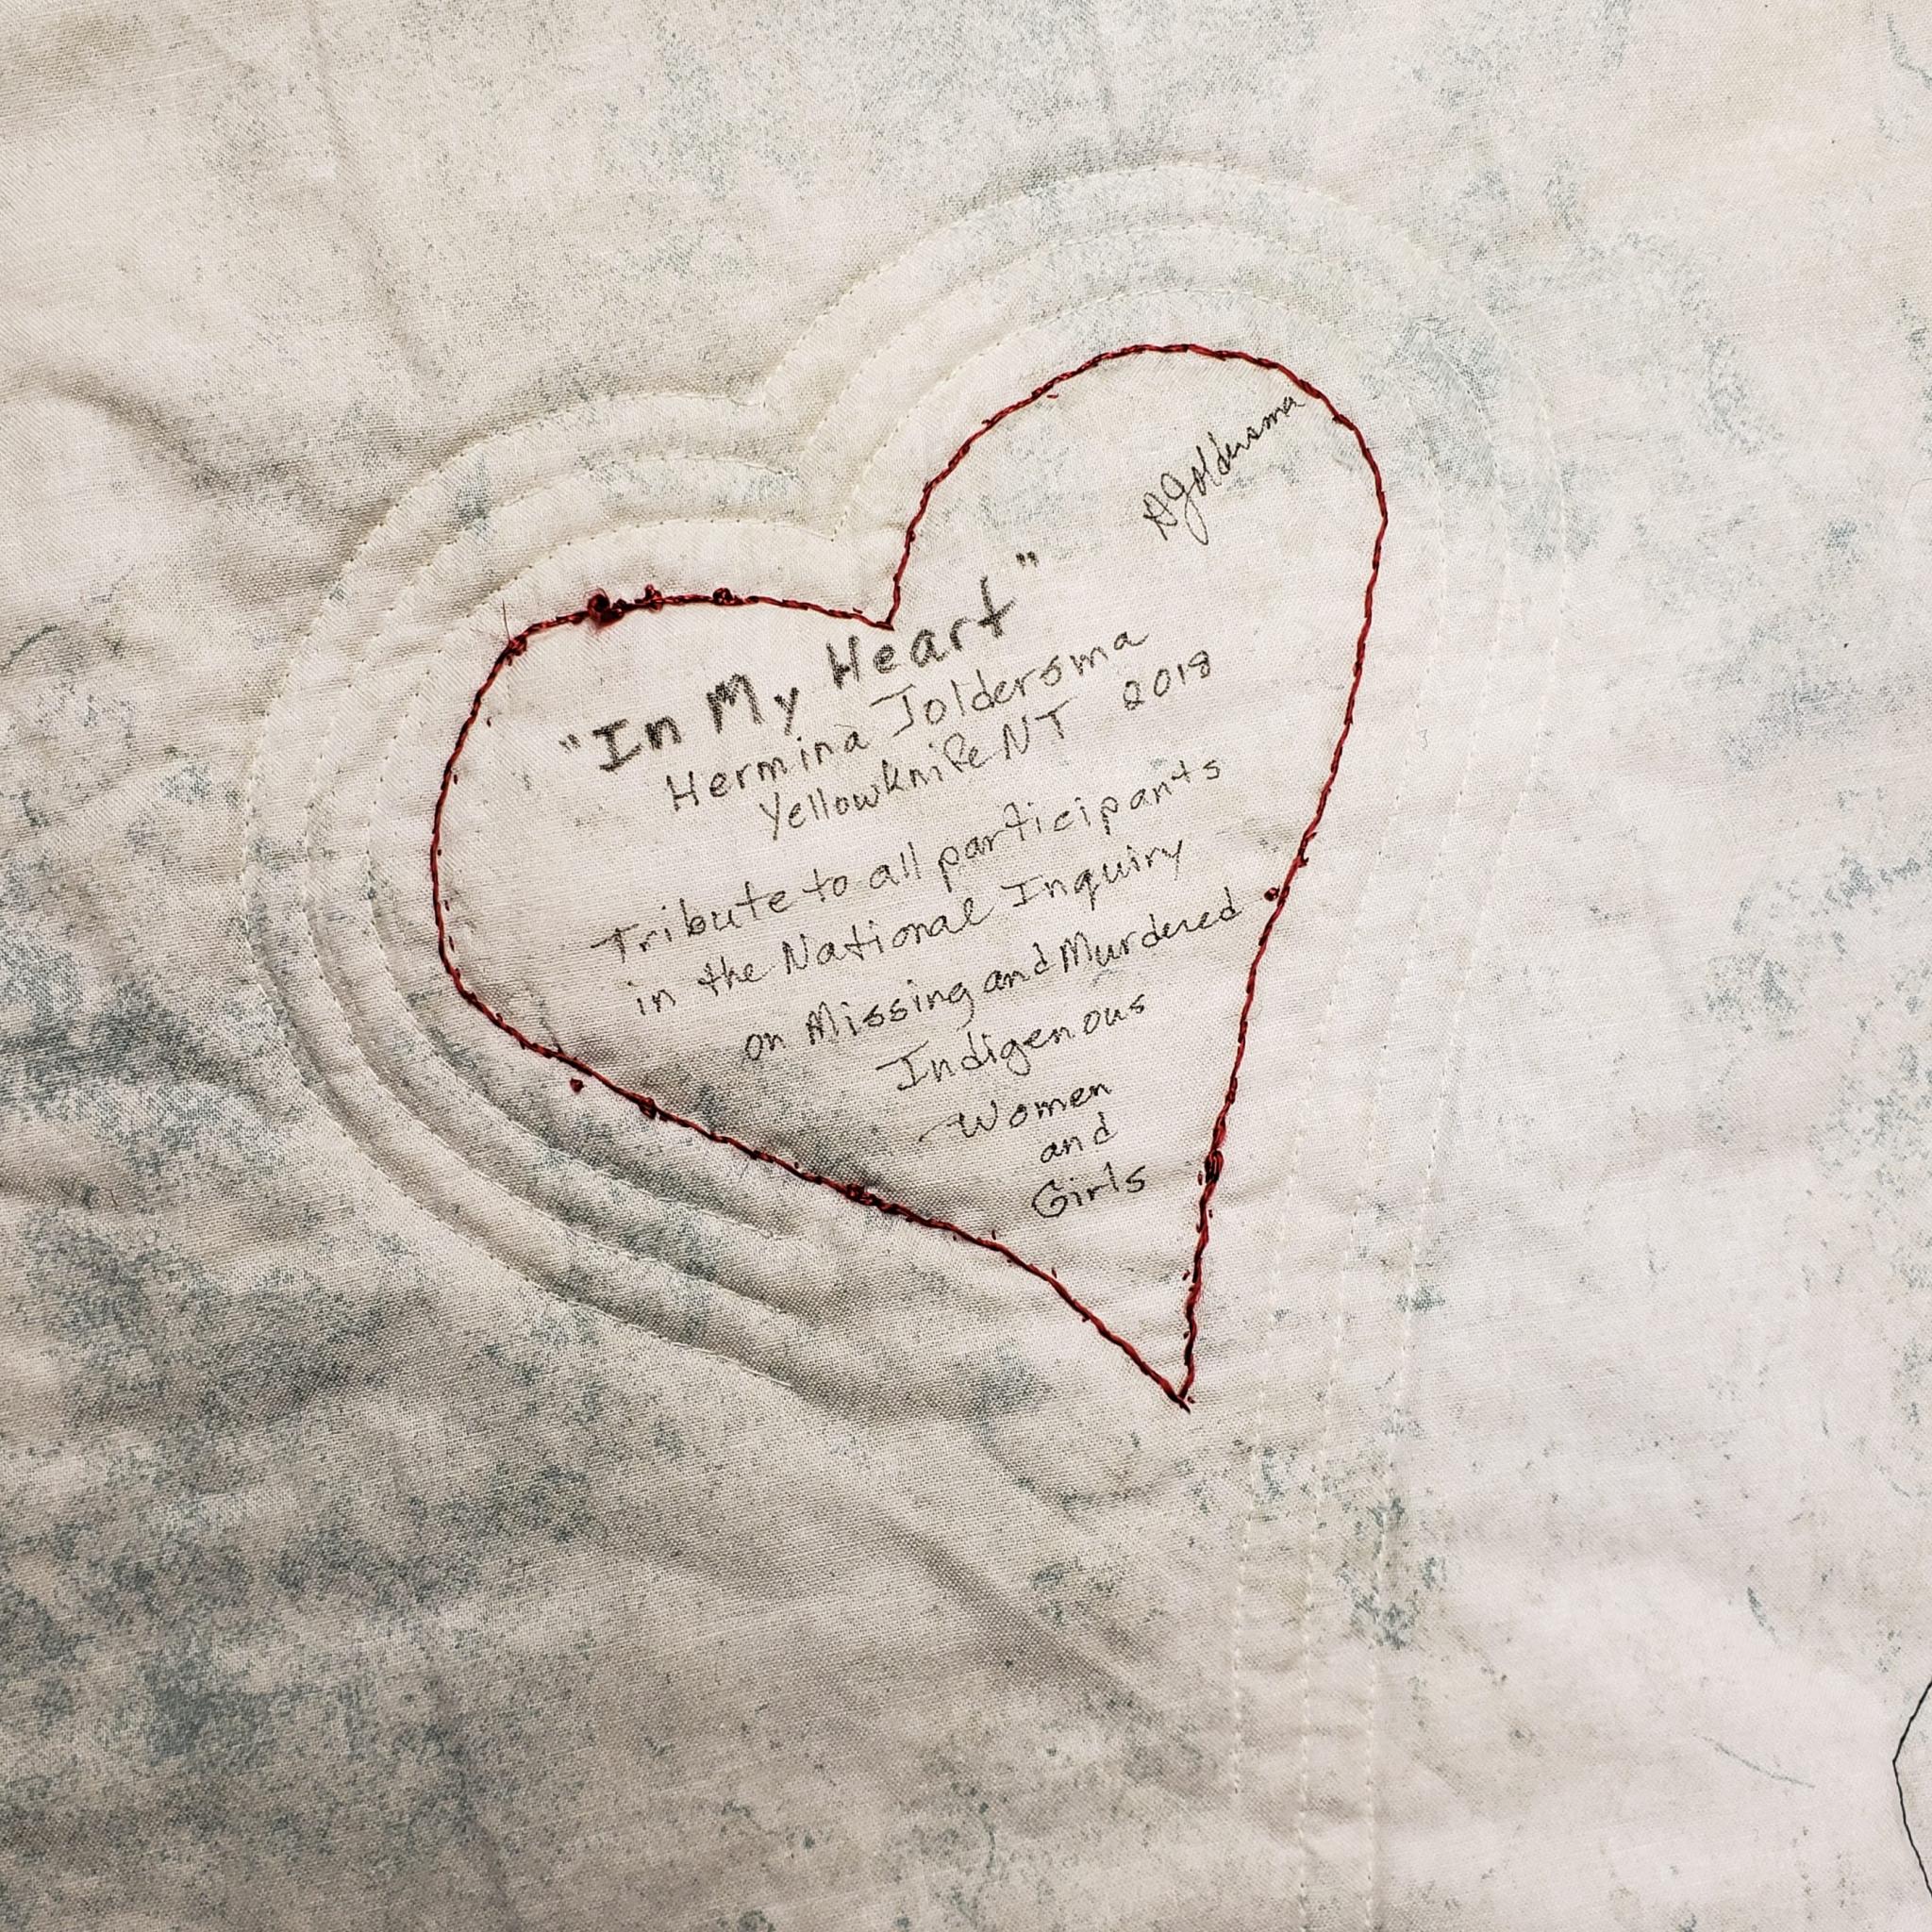 HJoldersma
"In My Heart"
Hermina Joldersma
Yellowknife NT 2018
Tribute to all participants
in the National Inquiry
on Missing and Murdered
Indigenous
Women
and
Girls